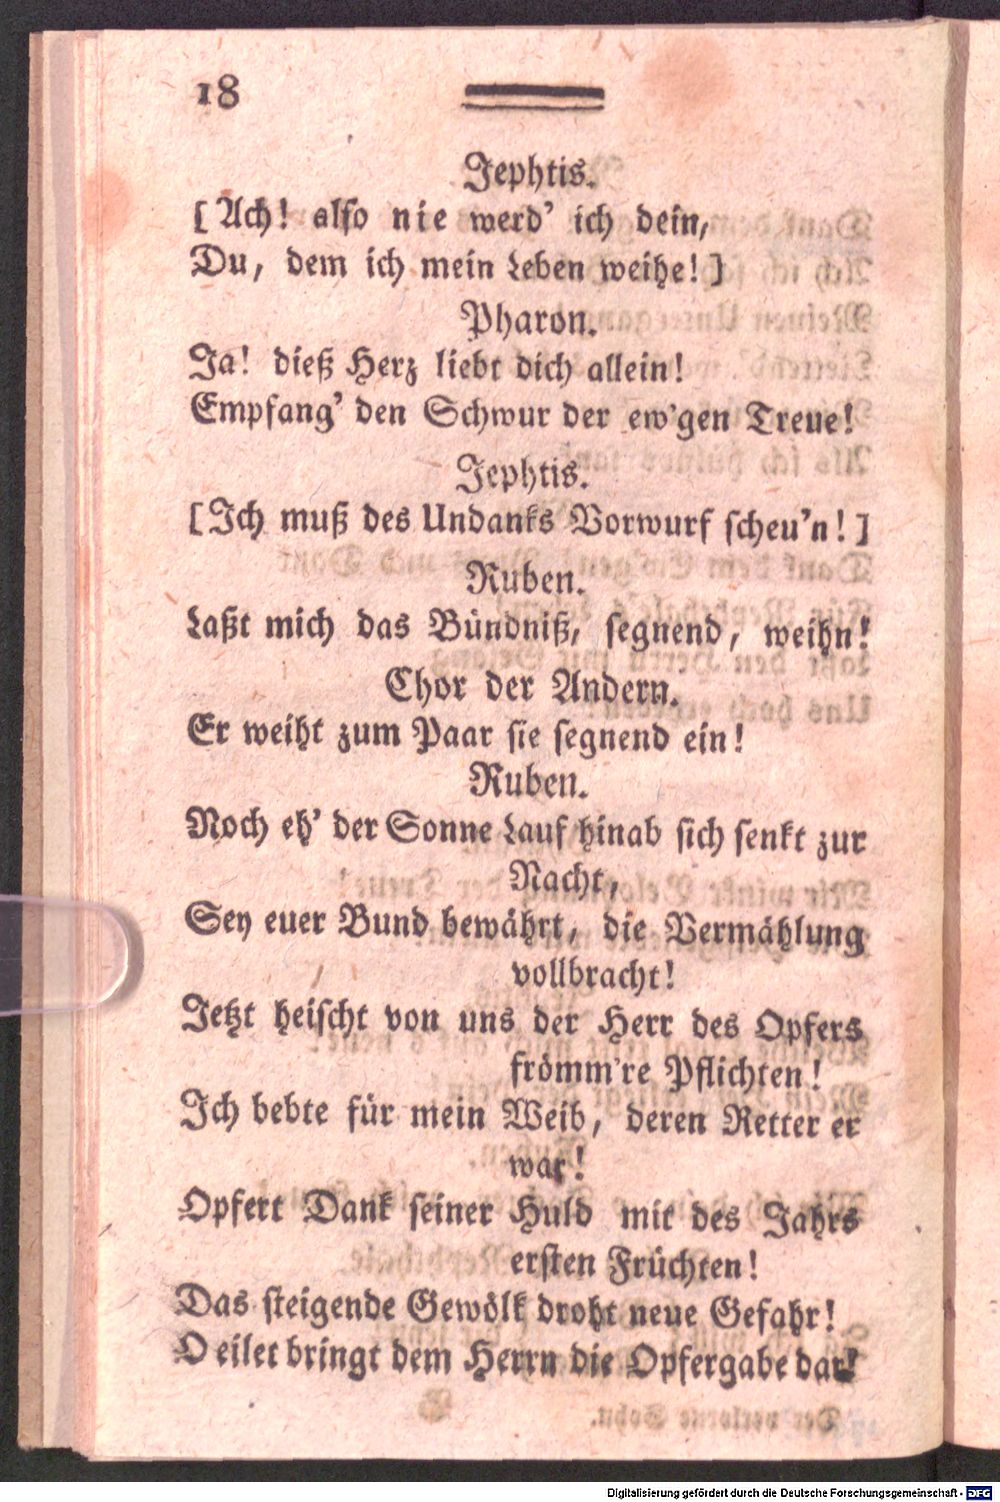 18
Jephtis.
[Ach! also nie werd' ich dein,
Du, dem ich mein Leben weihe!]
Pharon.
Ja! dieß Herz liebt dich allein!
Empfang' den Schwur der ew'gen Treue!
Jephtis.
[Ich muß des Undanks Vorwurf scheu'n!]
Ruben.
Laßt mich das Bündniß, segnend, weihn!
Chor der Andern.
Er weiht zum Paar sie segnend ein!
Ruben.
Noch eh' der Sonne Lauf hinab sich senkt zur
Nacht,
Sey euer Bund bewährt, die Vermählung
vollbracht!
Jetzt heischt von uns der Herr des Opfers
frömm're Pflichten!
Ich bebte für mein Weib, deren Retter er
war!
Opfert Dank seiner Huld mit des Jahrs
ersten Früchten!
Das steigende Gewölk droht neue Gefahr!
O eilet bringt dem Herrn die Opfergabe dar!
Digitalisierung gefördert durch die Deutsche Forschungsgemeinschaft - DFG